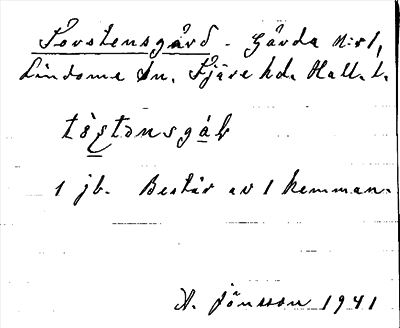 Torstensgård - Gårda N:r 1,
Lindome sn, Fjäre hd. Hall. l.
1 jb. Består av 1 hemman.
A. Jönsson 1941